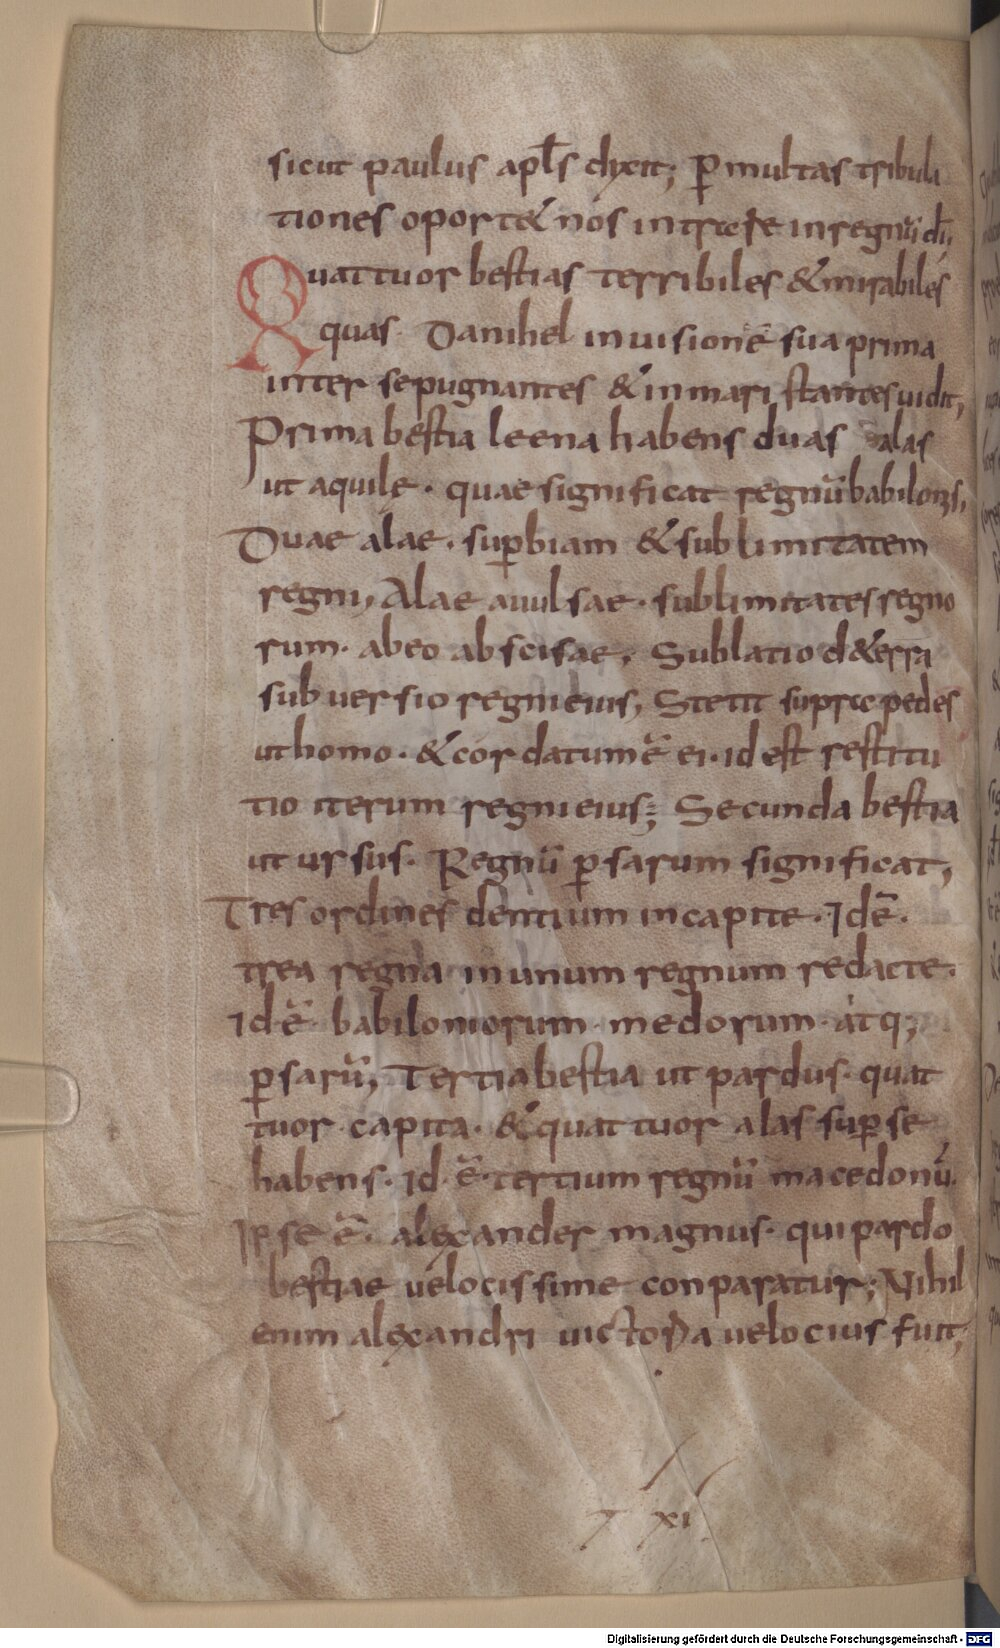 sicut paulus apl̄s dyxit; p̱ multas tribula
tiones oportet nós intrare in regnū dī;
Quattuor bestias terribiles & mirabiles
quas Danihel in uisionē sua prima
inter se pugnantes & in mari stantes uidit;
Prima bestia leena habens duas alas
ut aquilę. quae significat regnū babilonis;
Duae alae. sup̱biam & sublimitatem
regni; Alae auulsae. sublimitates regno
rum. ab eo abscisae; Sublatio d& erra
subuersio regni eius; Stetit supra pedes
ut homo. & cor datum ē ei. id est restitu
tio iterum regni eius; Secunda bestia
ut ursus. Regnū p̱sarum significat;
Tres ordines dentium in capite. Id ē.
trea regna in unum regnum redacte.
Id ē. babiloniorum. medorum. atq;
p̱sarū; Tertia bestia ut pardus. quat
tuor capita. & quattuor alas sup̱ se
habens. Id. ē. tertium regnū macedonū.
Ipse ē. alexander magnus. qui pardo
bestiae uelocissime conparatur; Nihil
enim alexandri uictoria uelocius fuit;
xi
Digitalisierung gefördert durch die Deutsche Forschungsgemeinschaft - DFG